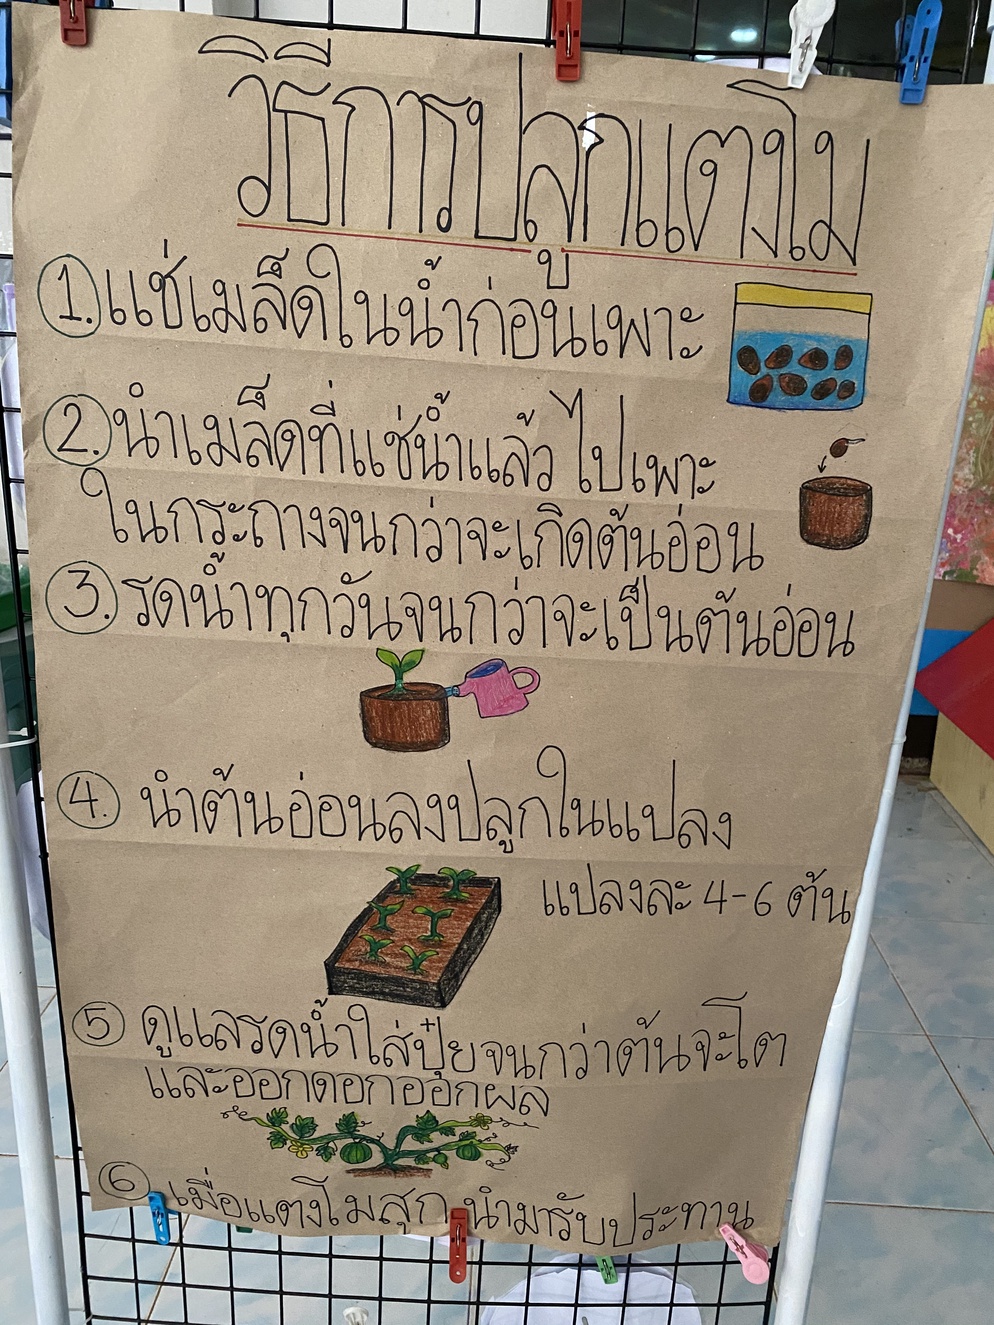 วิธีการปลูกแตงโม
1. แช่เมล็ดในน้ำก่อนเพาะ
2. นำเมล็ดที่แช่น้ำแล้ว ไปเพาะ
ในกระถางจนกว่าจะเกิดต้นอ่อน
3. รดน้ำทุกวันจนกว่าจะเป็นต้นอ่อน
4. นำต้นอ่อนลงปลูกในแปลง
แปลงละ 4-6 ต้น
5 ดูแลรดน้ำใส่ปุ๋ยจนกว่าต้นจะโต
และออกดอกออกผล
6 เมื่อแตงโมสุก นำมารับประทาน